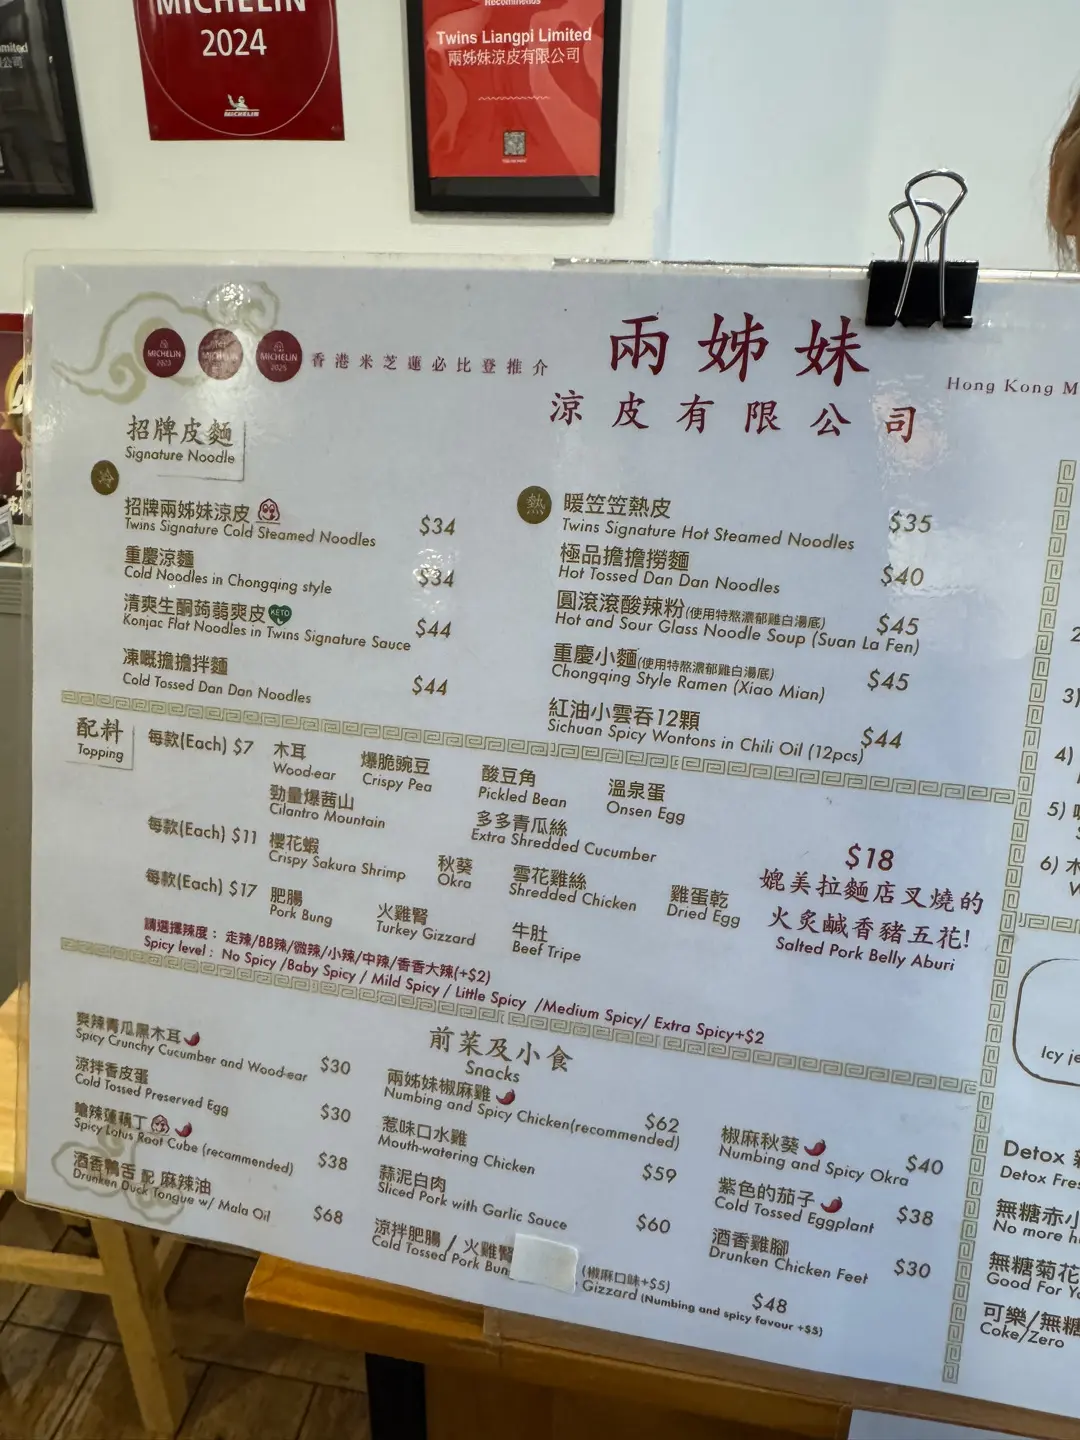 MICHELIN
2024
MICHELIN
Recommends
Twins Liangpi Limited
兩姊妹涼皮有限公司
MICHELIN
2023
MICHELIN
MICHELIN
2025
香港米芝蓮必比登推介
兩姊妹
涼皮有限公司
Hong Kong M
招牌皮麵
Signature Noodle
冷
招牌兩姊妹涼皮 $34
Twins Signature Cold Steamed Noodles
重慶涼麵 $34
Cold Noodles in Chongqing style
清爽生酮蒟蒻爽皮 KETO $44
Konjac Flat Noodles in Twins Signature Sauce
凍嘅擔擔拌麵 $44
Cold Tossed Dan Dan Noodles
熱
暖笠笠熱皮 $35
Twins Signature Hot Steamed Noodles
極品擔擔撈麵 $40
Hot Tossed Dan Dan Noodles
圓滾滾酸辣粉(使用特熬濃郁雞白湯底) $45
Hot and Sour Glass Noodle Soup (Suan La Fen)
重慶小麵(使用特熬濃郁雞白湯底) $45
Chongqing Style Ramen (Xiao Mian)
紅油小雲吞12顆 $44
Sichuan Spicy Wontons in Chili Oil (12pcs)
配料
Topping
每款(Each) $7
木耳
Wood-ear
爆脆豌豆
Crispy Pea
酸豆角
Pickled Bean
溫泉蛋
Onsen Egg
勁量爆茜山
Cilantro Mountain
多多青瓜絲
Extra Shredded Cucumber
每款(Each) $11
櫻花蝦
Crispy Sakura Shrimp
秋葵
Okra
雪花雞絲
Shredded Chicken
雞蛋乾
Dried Egg
每款(Each) $17
肥腸
Pork Bung
火雞腎
Turkey Gizzard
牛肚
Beef Tripe
$18
媲美拉麵店叉燒的
火炙鹹香豬五花!
Salted Pork Belly Aburi
請選擇辣度： 走辣/BB辣/微辣/小辣/中辣/香香大辣(+$2)
Spicy level : No Spicy /Baby Spicy / Mild Spicy / Little Spicy /Medium Spicy/ Extra Spicy+$2
前菜及小食
Snacks
爽辣青瓜黑木耳 $30
Spicy Crunchy Cucumber and Wood-ear
涼拌香皮蛋 $30
Cold Tossed Preserved Egg
嗆辣蓮藕丁 $38
Spicy Lotus Root Cube (recommended)
酒香鴨舌 配 麻辣油 $68
Drunken Duck Tongue w/ Mala Oil
兩姊妹椒麻雞 $62
Numbing and Spicy Chicken(recommended)
惹味口水雞 $59
Mouth-watering Chicken
蒜泥白肉 $60
Sliced Pork with Garlic Sauce
涼拌肥腸 / 火雞腎 (椒麻口味+$5) $48
Cold Tossed Pork Bun Gizzard (Numbing and spicy favour +$5)
椒麻秋葵 $40
Numbing and Spicy Okra
紫色的茄子 $38
Cold Tossed Eggplant
酒香雞腳 $30
Drunken Chicken Feet
3)
4)
5)
6) 木
Icy je
Detox
Detox Fres
無糖赤小
No more h
無糖菊花
Good For Yo
可樂/無糖
Coke/Zero